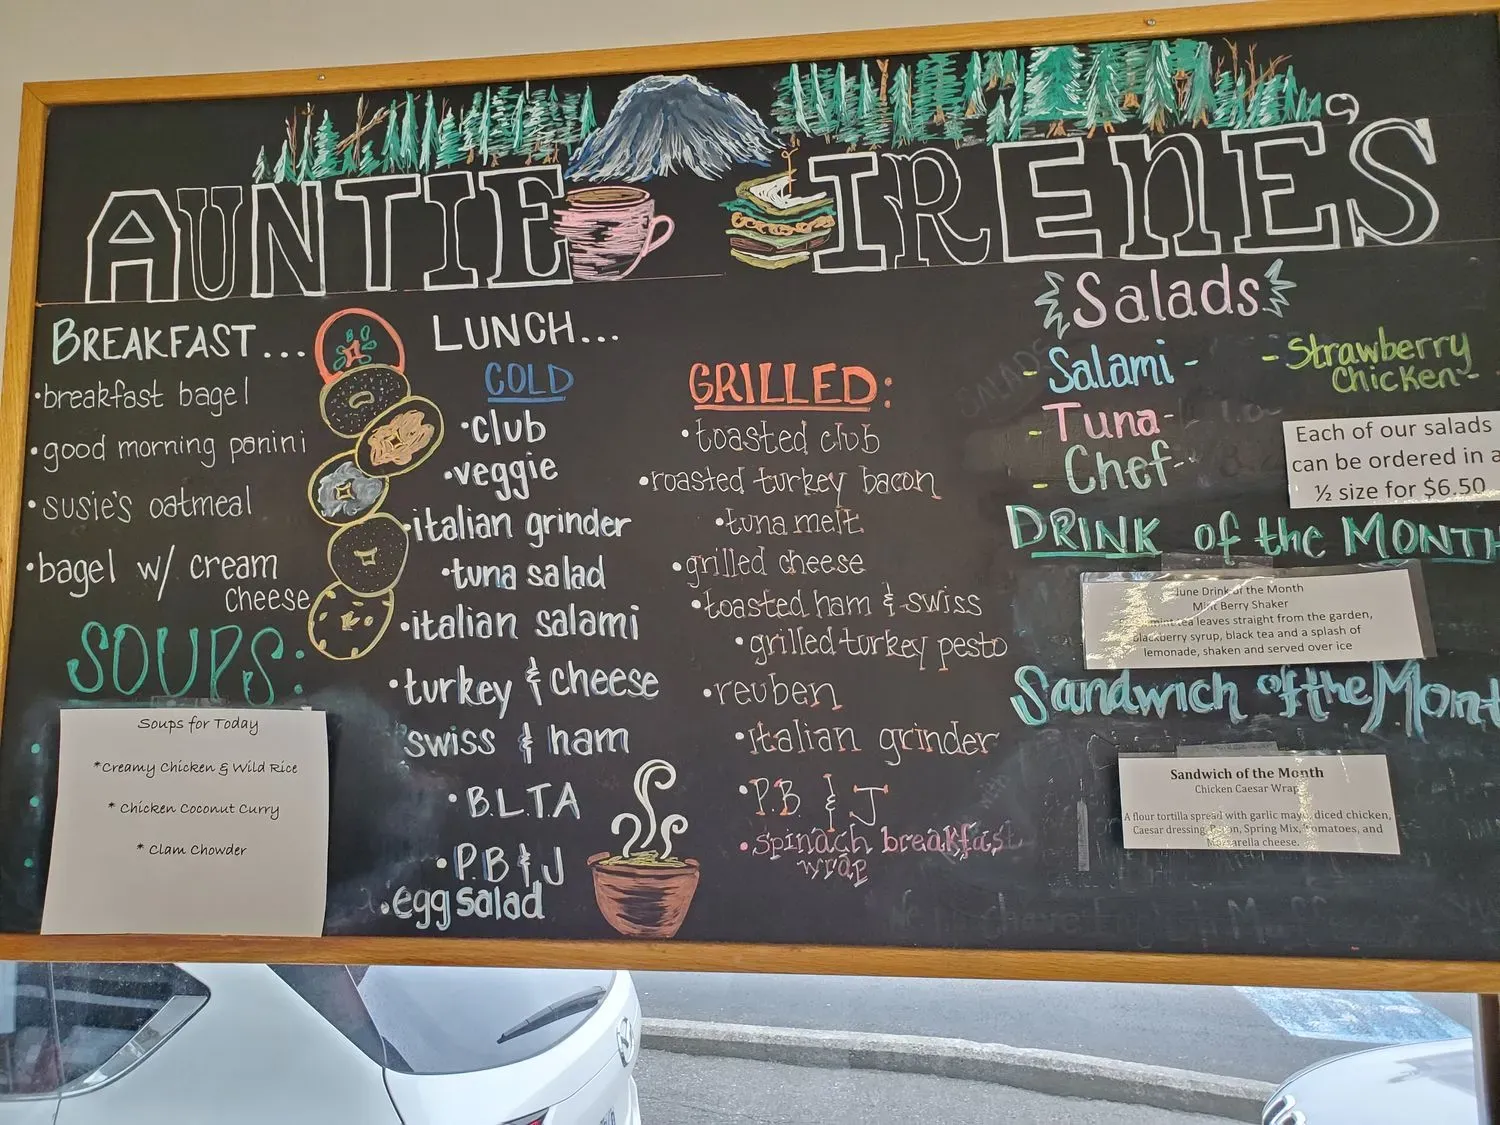 AUNTIE IRENE'S
BREAKFAST...
•breakfast bagel
•good morning panini
•susie's oatmeal
•bagel w/ cream
cheese
SOUPS:
Soups for Today
*Creamy Chicken & Wild Rice
* Chicken Coconut Curry
* Clam Chowder
LUNCH...
COLD
•club
•veggie
•italian grinder
•tuna salad
•italian salami
•turkey & cheese
swiss & ham
•B.L.T.A
•P.B & J
•egg salad
GRILLED:
•toasted club
•roasted turkey bacon
•tuna melt
•grilled cheese
•toasted ham & swiss
•grilled turkey pesto
•reuben
•italian grinder
•P.B & J
•spinach breakfast
wrap
Salads
- Salami -
- Tuna -
- Chef -
- Strawberry
Chicken -
Each of our salads
can be ordered in a
½ size for $6.50
DRINK of the MONTH
June Drink of the Month
Mint Berry Shaker
tea leaves straight from the garden,
blackberry syrup, black tea and a splash of
lemonade, shaken and served over ice
Sandwich of the Mont
Sandwich of the Month
Chicken Caesar Wrap
A flour tortilla spread with garlic mayo, diced chicken,
Caesar dressing, Spring Mix, Tomatoes, and
Mozzarella cheese.